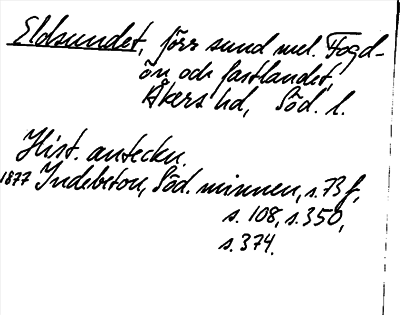 Eldsundet, förr sund mel. Fogd-
ön och fastlandet,
Åkers hd, Söd. l.
Hist. anteckn.
1877 Indebetou, Söd. minnen, s. 73 f,
s. 108, s. 350,
s. 374.